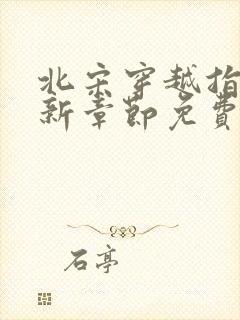 北宋穿越指
新章節免費
石亭